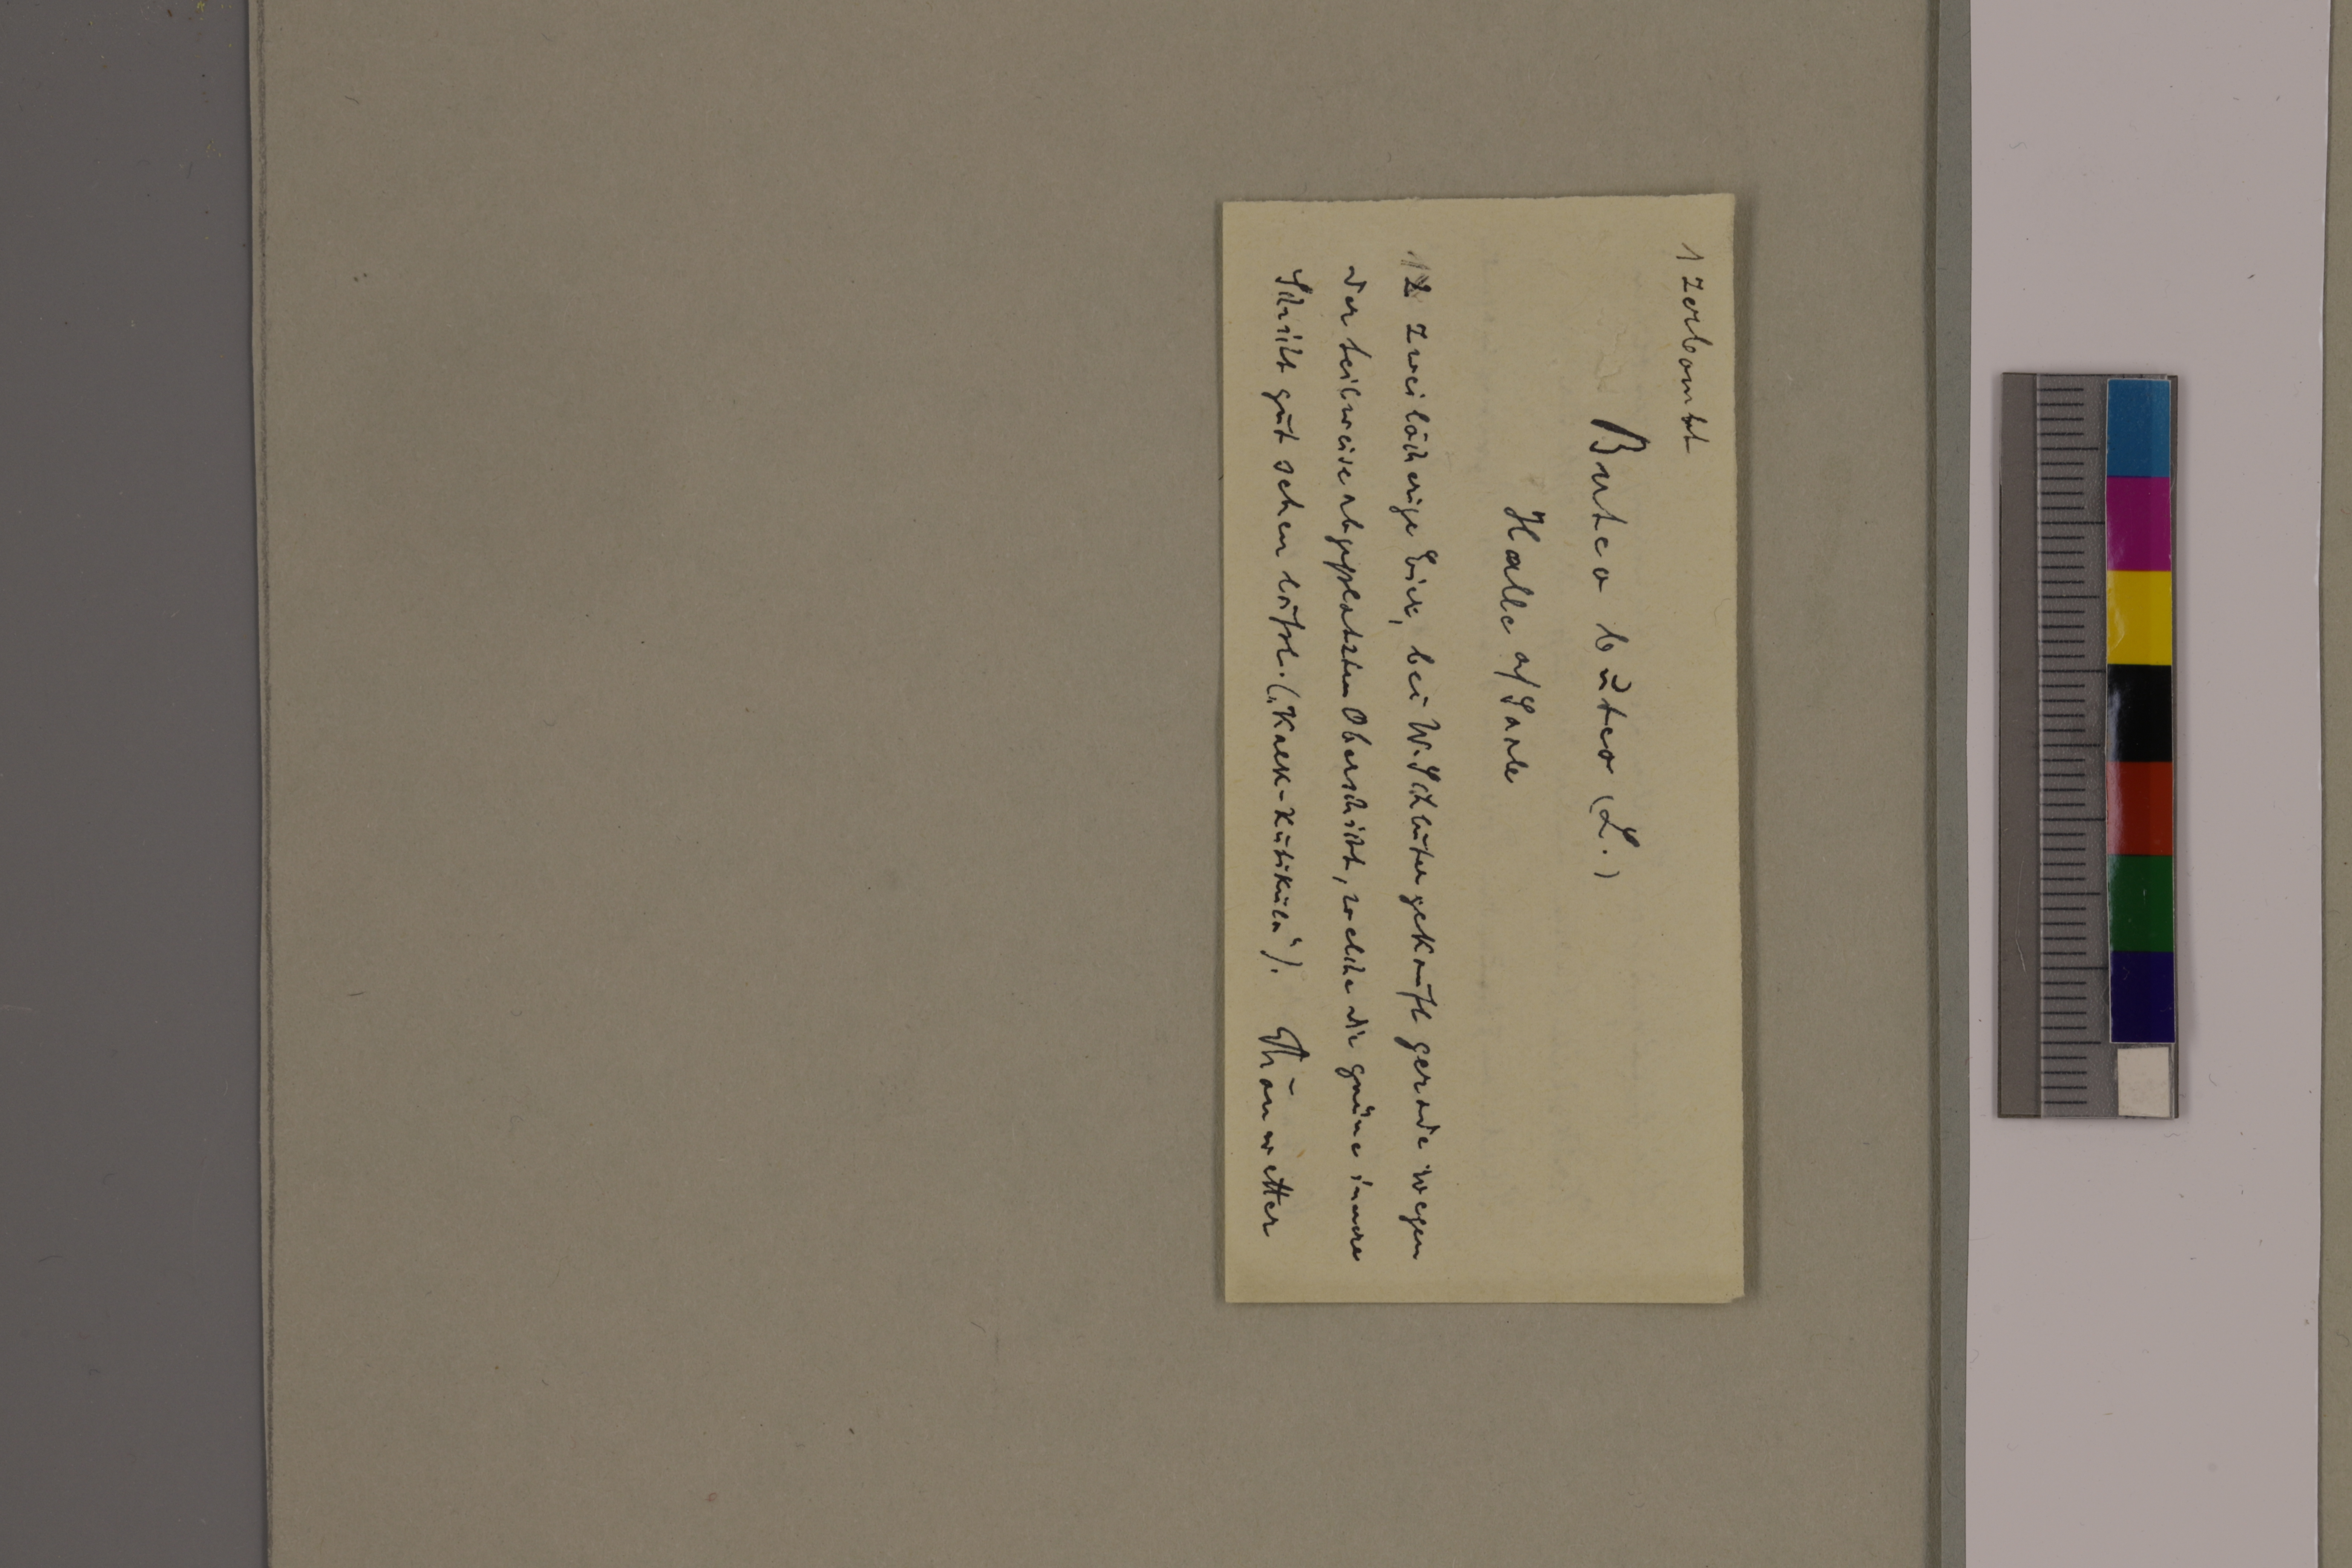 1 zerbombt
Buteo buteo (L.)
Halle a/Saale
2 zweilöcherige Eier, bei W. Schlüter gekauft gerade wegen
der teilweise abgeplatzten Oberschicht, welche die grüne innere
Schicht gut sehen läßt. („Kalk-Kutikula").    Schönwetter